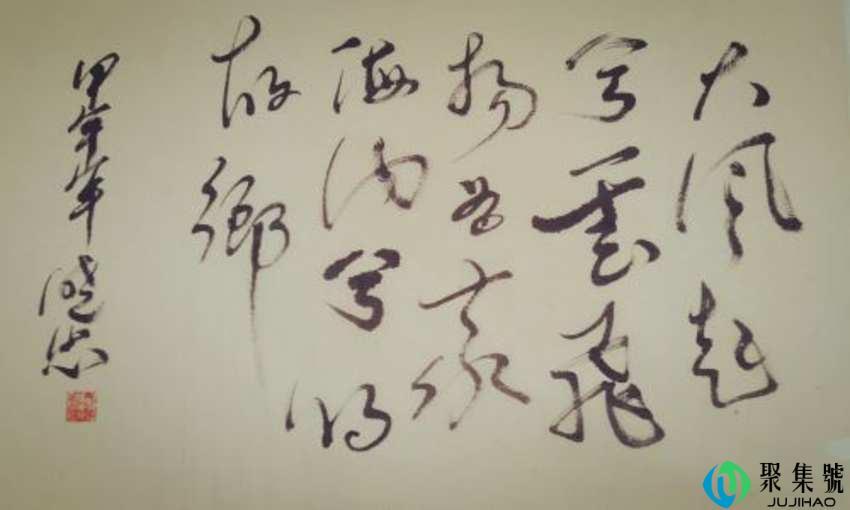 大風起
兮雲飛
揚
海内兮歸
故鄉
甲午年
曉忠
聚集號
JUJIHAO